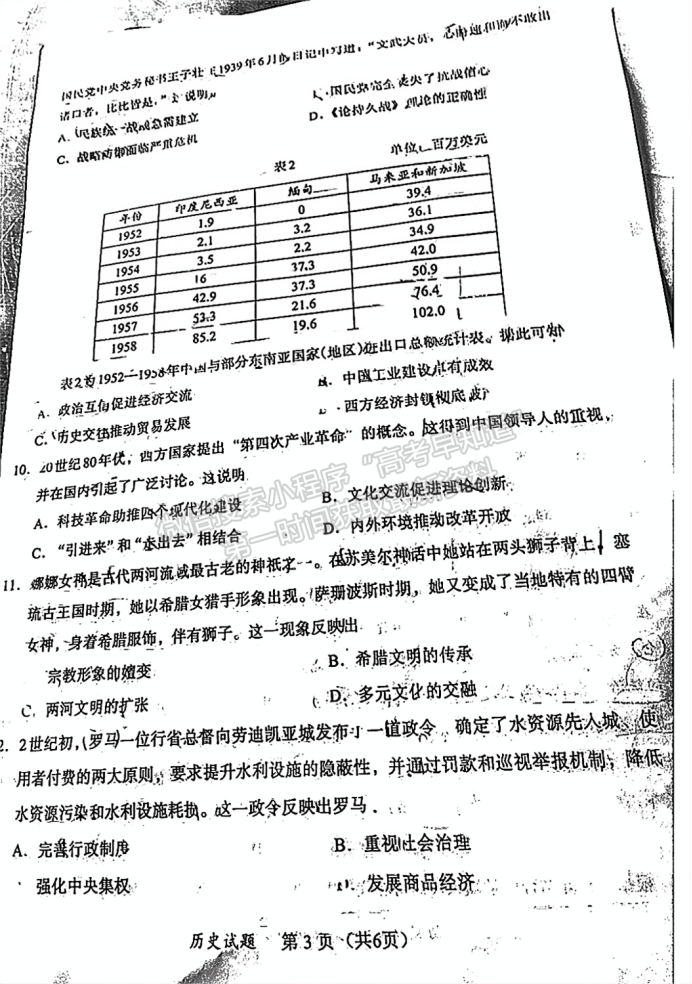 国民党中央党务秘书王子壮在1939年6月的日记中写道：“文武大员，忠
诸口者，比比皆是。”这说明
A. 民族统一战线急需建立
国民党完全丧失了抗战信心
C. 战略防御面临严重危机
D. 《论持久战》理论的正确性
表2
单位：百万美元
年份 印度尼西亚 缅甸 马来亚和新加坡
1952 1.9 0 39.4
1953 2.1 3.2 36.1
1954 3.5 2.2 34.9
1955 16 37.3 42.0
1956 42.9 37.3 50.9
1957 53.3 21.6 76.4
1958 85.2 19.6 102.0
表2为1952—1958年中国与部分东南亚国家（地区）进出口总额统计表。据此可知
A. 政治互信促进经济交流
中国工业建设卓有成效
C. 历史交往推动贸易发展
西方经济封锁彻底破产
10. 20世纪80年代，西方国家提出“第四次产业革命”的概念。这得到中国领导人的重视，
并在国内引起了广泛讨论。这说明
A. 科技革命助推四个现代化建设
B. 文化交流促进理论创新
C. “引进来”和“走出去”相结合
D. 内外环境推动改革开放
11. 娜娜女神是古代两河流域最古老的神祇之一。在苏美尔神话中她站在两头狮子背上，塞
琉古王国时期，她以希腊女猎手形象出现。萨珊波斯时期，她又变成了当地特有的四臂
女神，身着希腊服饰，伴有狮子。这一现象反映出
宗教形象的嬗变
B. 希腊文明的传承
C. 两河文明的扩张
D. 多元文化的交融
2. 2世纪初，罗马一位行省总督向劳迪凯亚城发布了一道政令，确定了水资源先入城、使
用者付费的两大原则，要求提升水利设施的隐蔽性，并通过罚款和巡视举报机制，降低
水资源污染和水利设施耗损。这一政令反映出罗马
A. 完善行政制度
B. 重视社会治理
强化中央集权
D. 发展商品经济
微信搜索小程序“高考早知道”
第一时间获取最新资料
历史试题 第3页（共6页）